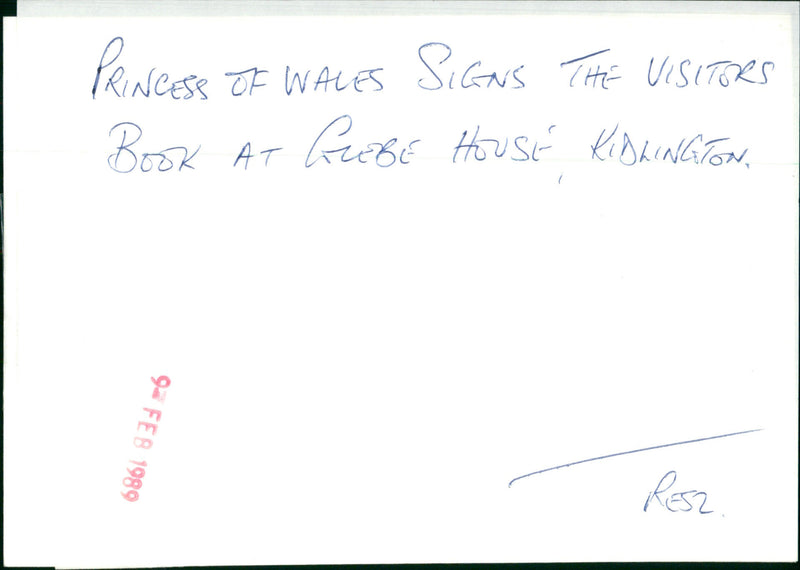 PRINCESS OF WALES SIGNS THE VISITORS
BOOK AT GLEBE HOUSE, KIDLINGTON.
9 FEB 1989